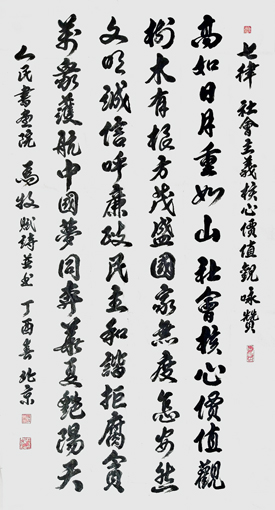 七律 社會主義核心價值觀咏贊
高如日月重如山社會核心價值觀
樹木有根方茂盛國家無度怎安然
文明誠信呼廉政民主和諧拒腐貪
万眾護航中國夢同奔華夏艷陽天
人民書畫院 馬牧賦詩並書 丁酉春 北京